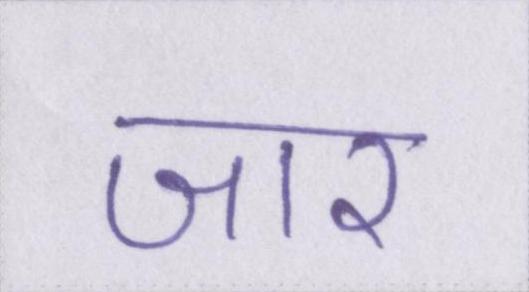 जार